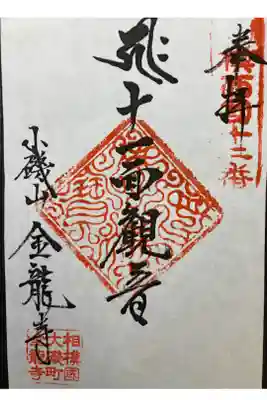 奉拝
十二番
十一面觀音
小磯山 金龍寺
相模國
大磯町
金龍寺